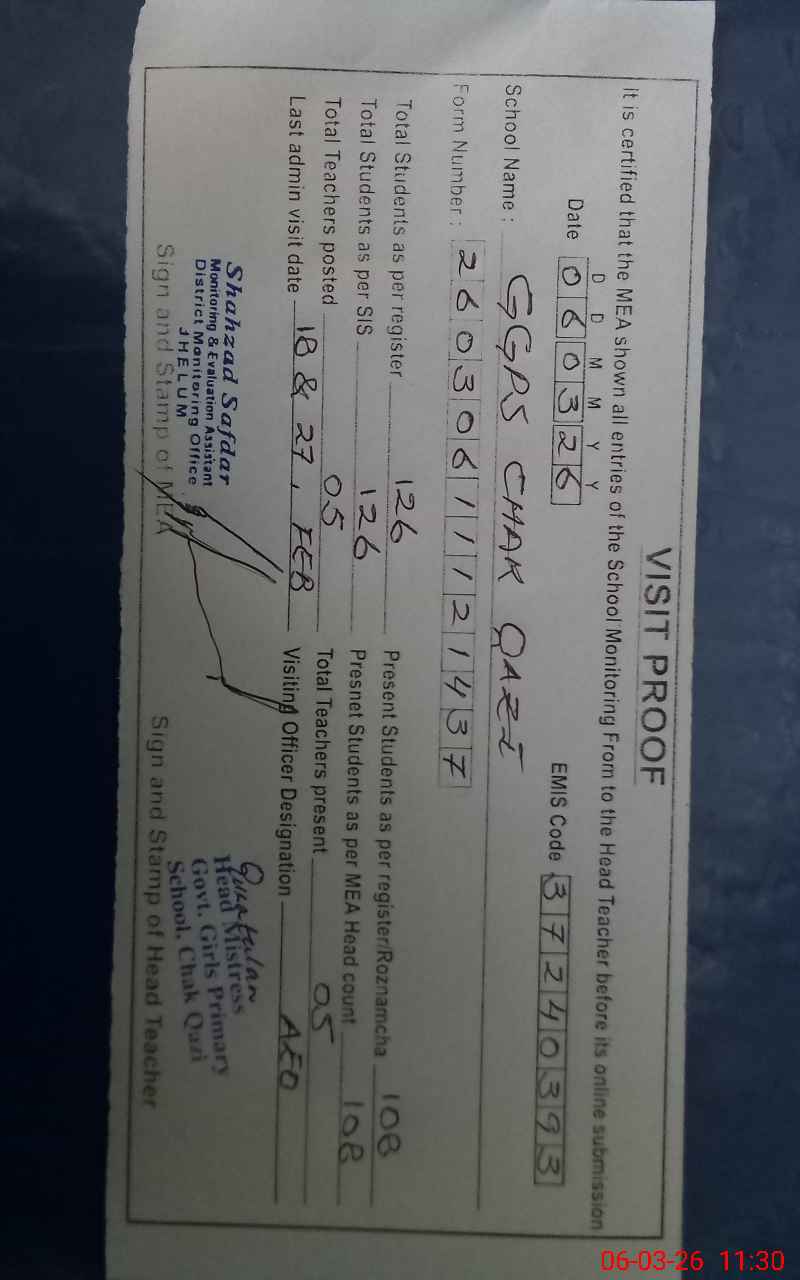 VISIT PROOF
It is certified that the MEA shown all entries of the School Monitoring From to the Head Teacher before its online submission
D D M M Y Y
Date 060326 EMIS Code 37240393
School Name : GGPS CHAK QAZI
Form Number : 26030611121437
Total Students as per register 126 Present Students as per register/Roznamcha 108
Total Students as per SIS 126 Presnet Students as per MEA Head count 108
Total Teachers posted 05 Total Teachers present 05
Last admin visit date 18 & 27, FEB Visiting Officer Designation AEO
Shahzad Safdar
Monitoring & Evaluation Assistant
District Monitoring Office
JHELUM
Sign and Stamp of MEA
Head Mistress
Govt. Girls Primary
School, Chak Qazi
Sign and Stamp of Head Teacher
06-03-26 11:30